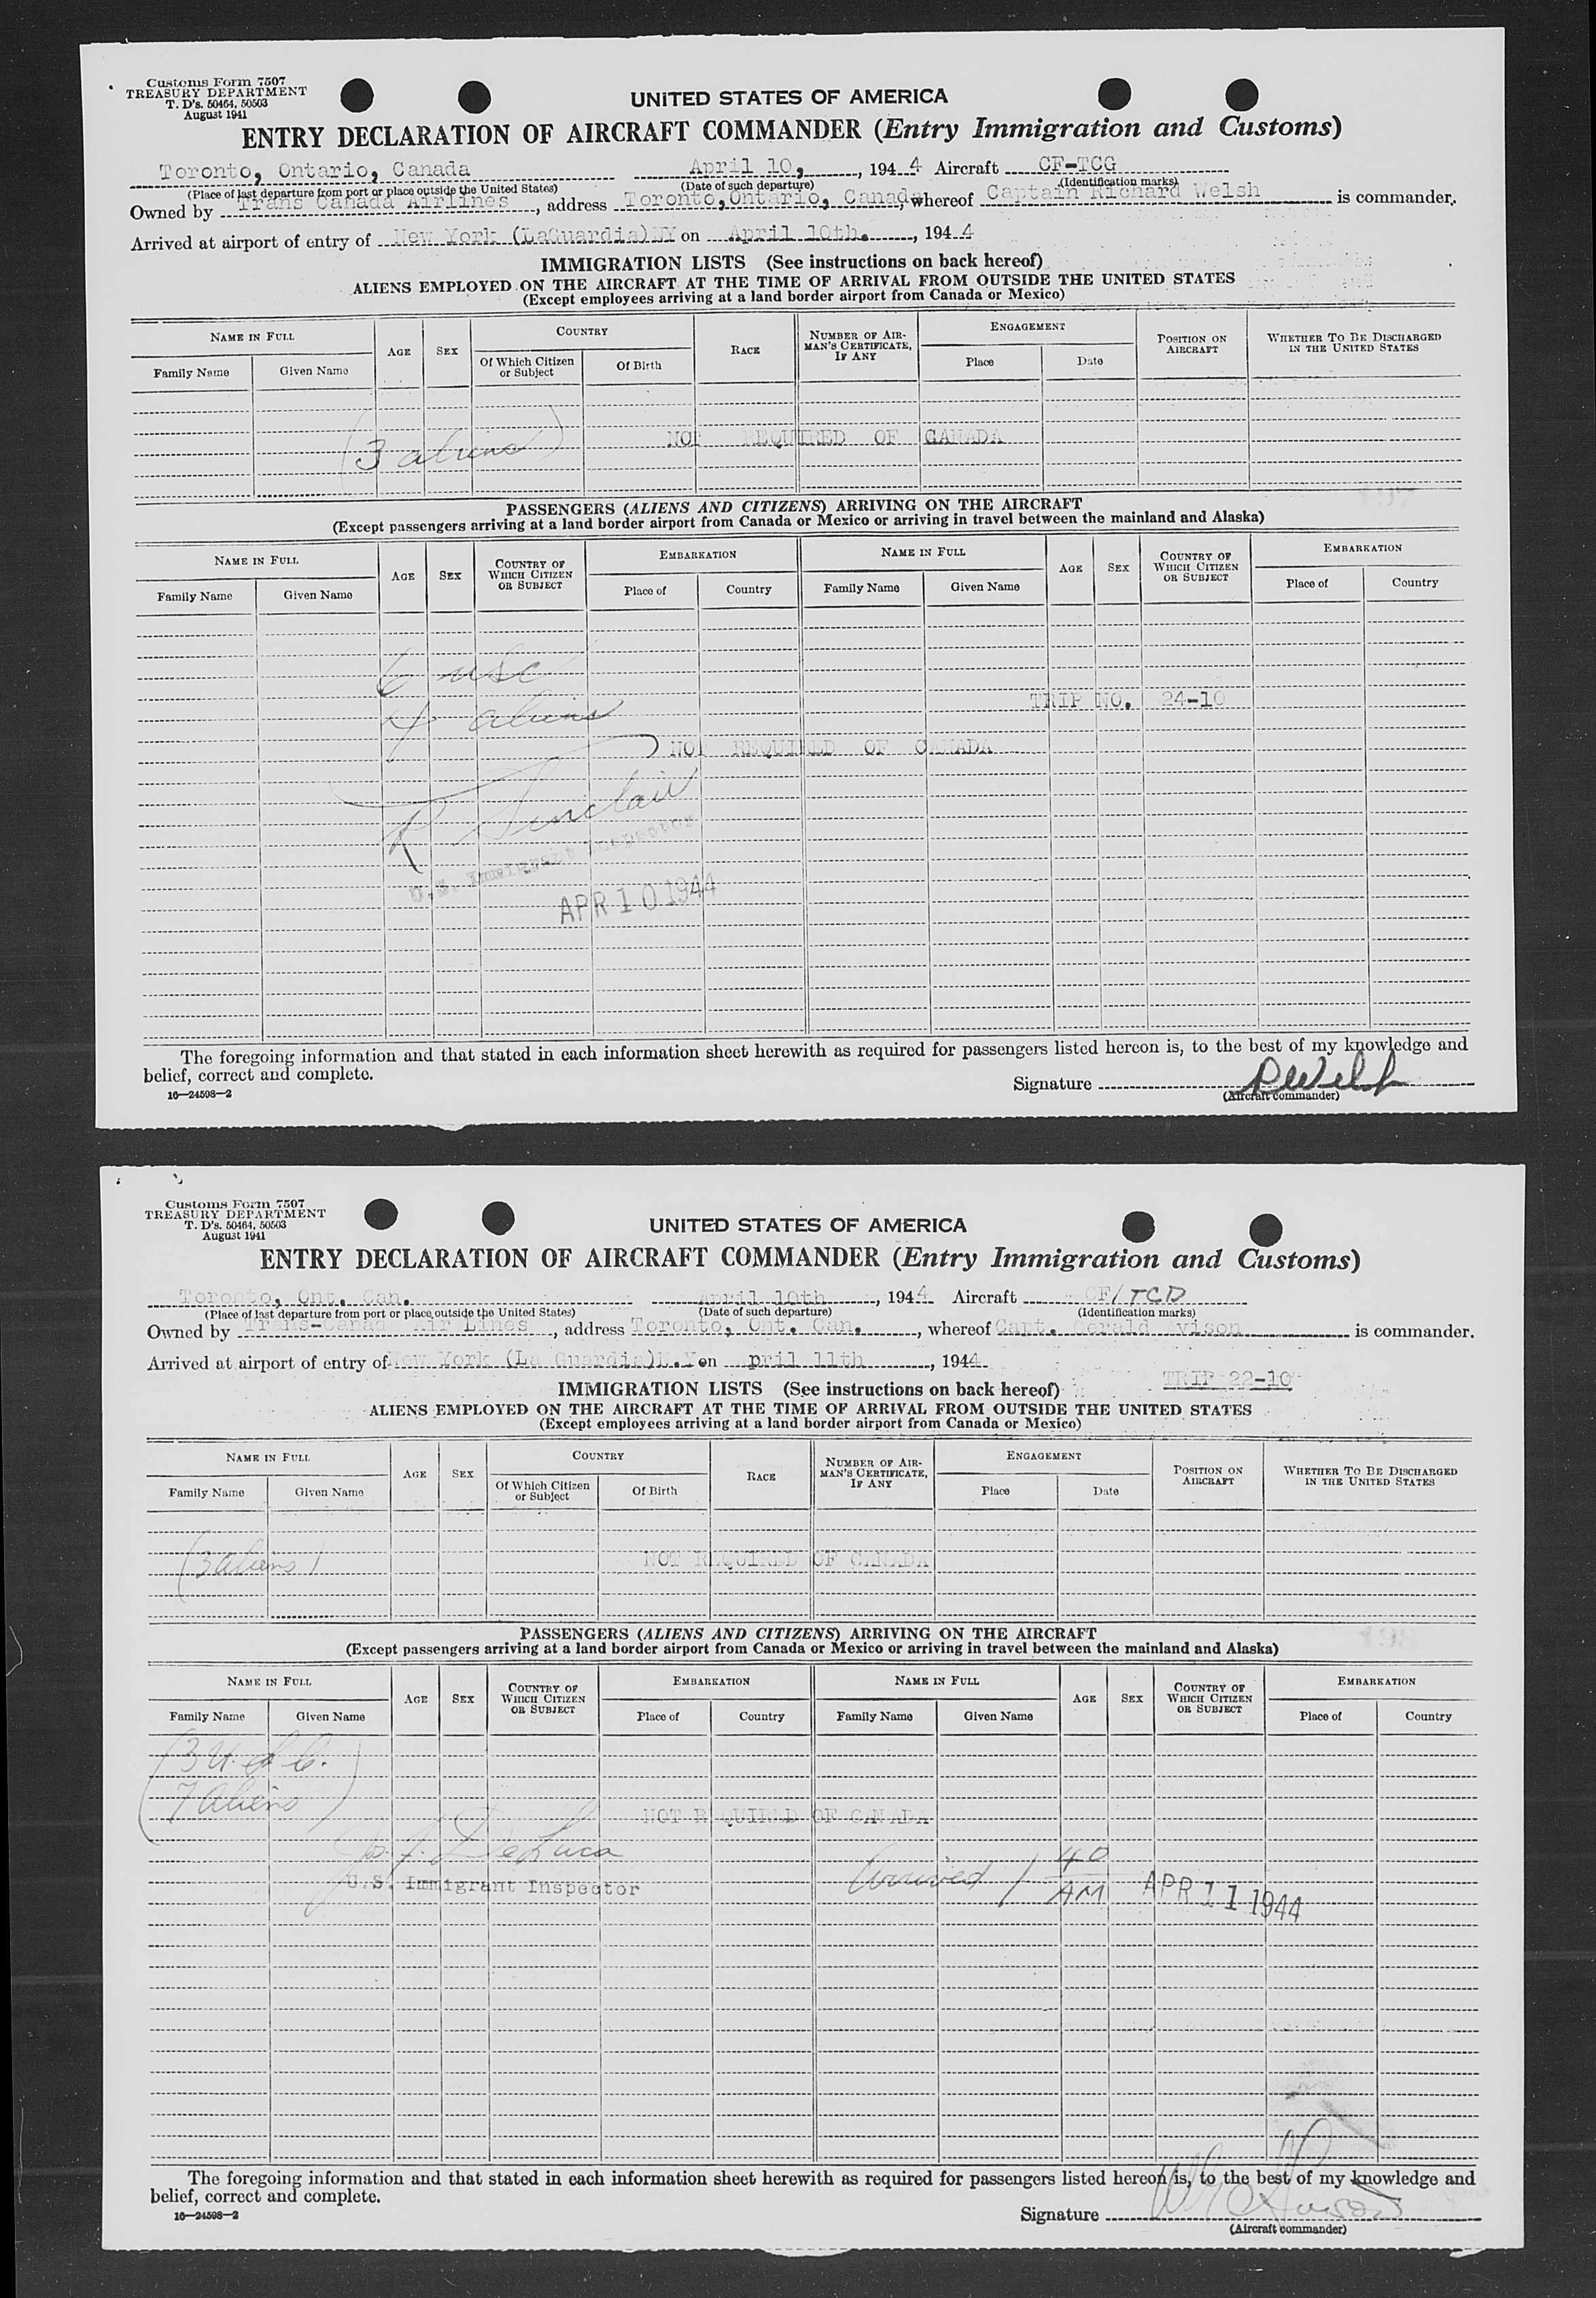 Customs Form 7507
TREASURY DEPARTMENT
T. D's. 50464, 50503
August 1941
UNITED STATES OF AMERICA
ENTRY DECLARATION OF AIRCRAFT COMMANDER (Entry Immigration and Customs)
Toronto, Ontario, Canada April 10, , 194 4 Aircraft CF-TCG
(Place of last departure from port or place outside the United States) (Date of such departure) (Identification marks)
Owned by Trans Canada Airlines , address Toronto, Ontario, Canada, whereof Captain Richard Welsh is commander.
Arrived at airport of entry of New York (LaGuardia) NY on April 10th. , 194 4
IMMIGRATION LISTS (See instructions on back hereof)
ALIENS EMPLOYED ON THE AIRCRAFT AT THE TIME OF ARRIVAL FROM OUTSIDE THE UNITED STATES
(Except employees arriving at a land border airport from Canada or Mexico)
NAME IN FULL AGE SEX COUNTRY RACE NUMBER OF AIRMAN'S CERTIFICATE, IF ANY ENGAGEMENT POSITION ON AIRCRAFT WHETHER TO BE DISCHARGED IN THE UNITED STATES
Family Name Given Name Of Which Citizen or Subject Of Birth Place Date
(3 aliens) NOT REQUIRED OF CANADA
197
PASSENGERS (ALIENS AND CITIZENS) ARRIVING ON THE AIRCRAFT
(Except passengers arriving at a land border airport from Canada or Mexico or arriving in travel between the mainland and Alaska)
NAME IN FULL AGE SEX COUNTRY OF WHICH CITIZEN OR SUBJECT EMBARKATION NAME IN FULL AGE SEX COUNTRY OF WHICH CITIZEN OR SUBJECT EMBARKATION
Family Name Given Name Place of Country Family Name Given Name Place of Country
6 usc
TRIP NO. 24-10
aliens
NOT REQUIRED OF CANADA
R Sinclair
U.S. Immigrant Inspector
APR 10 1944
The foregoing information and that stated in each information sheet herewith as required for passengers listed hereon is, to the best of my knowledge and
belief, correct and complete.
Signature R Welsh
(Aircraft commander)
16—24598-2
Customs Form 7507
TREASURY DEPARTMENT
T. D's. 50464, 50503
August 1941
UNITED STATES OF AMERICA
ENTRY DECLARATION OF AIRCRAFT COMMANDER (Entry Immigration and Customs)
Toronto, Ont. Can. April 10th , 194 4 Aircraft CF/TCD
(Place of last departure from port or place outside the United States) (Date of such departure) (Identification marks)
Owned by Trans-Canad Air Lines , address Toronto, Ont. Can. , whereof Capt. Gerald Avison is commander.
Arrived at airport of entry of New York (La Guardia) N.Y on pril 11th , 1944
TRIP 22-10
IMMIGRATION LISTS (See instructions on back hereof)
ALIENS EMPLOYED ON THE AIRCRAFT AT THE TIME OF ARRIVAL FROM OUTSIDE THE UNITED STATES
(Except employees arriving at a land border airport from Canada or Mexico)
NAME IN FULL AGE SEX COUNTRY RACE NUMBER OF AIRMAN'S CERTIFICATE, IF ANY ENGAGEMENT POSITION ON AIRCRAFT WHETHER TO BE DISCHARGED IN THE UNITED STATES
Family Name Given Name Of Which Citizen or Subject Of Birth Place Date
(3 aliens) NOT REQUIRED OF CANADA
198
PASSENGERS (ALIENS AND CITIZENS) ARRIVING ON THE AIRCRAFT
(Except passengers arriving at a land border airport from Canada or Mexico or arriving in travel between the mainland and Alaska)
NAME IN FULL AGE SEX COUNTRY OF WHICH CITIZEN OR SUBJECT EMBARKATION NAME IN FULL AGE SEX COUNTRY OF WHICH CITIZEN OR SUBJECT EMBARKATION
Family Name Given Name Place of Country Family Name Given Name Place of Country
(3 U.S.C.
7 Aliens)
NOT REQUIRED OF CANADA
J. DeLuca
U.S. Immigrant Inspector
Arrived 1 40 AM APR 11 1944
The foregoing information and that stated in each information sheet herewith as required for passengers listed hereon is, to the best of my knowledge and
belief, correct and complete.
Signature
(Aircraft commander)
16—24598-2